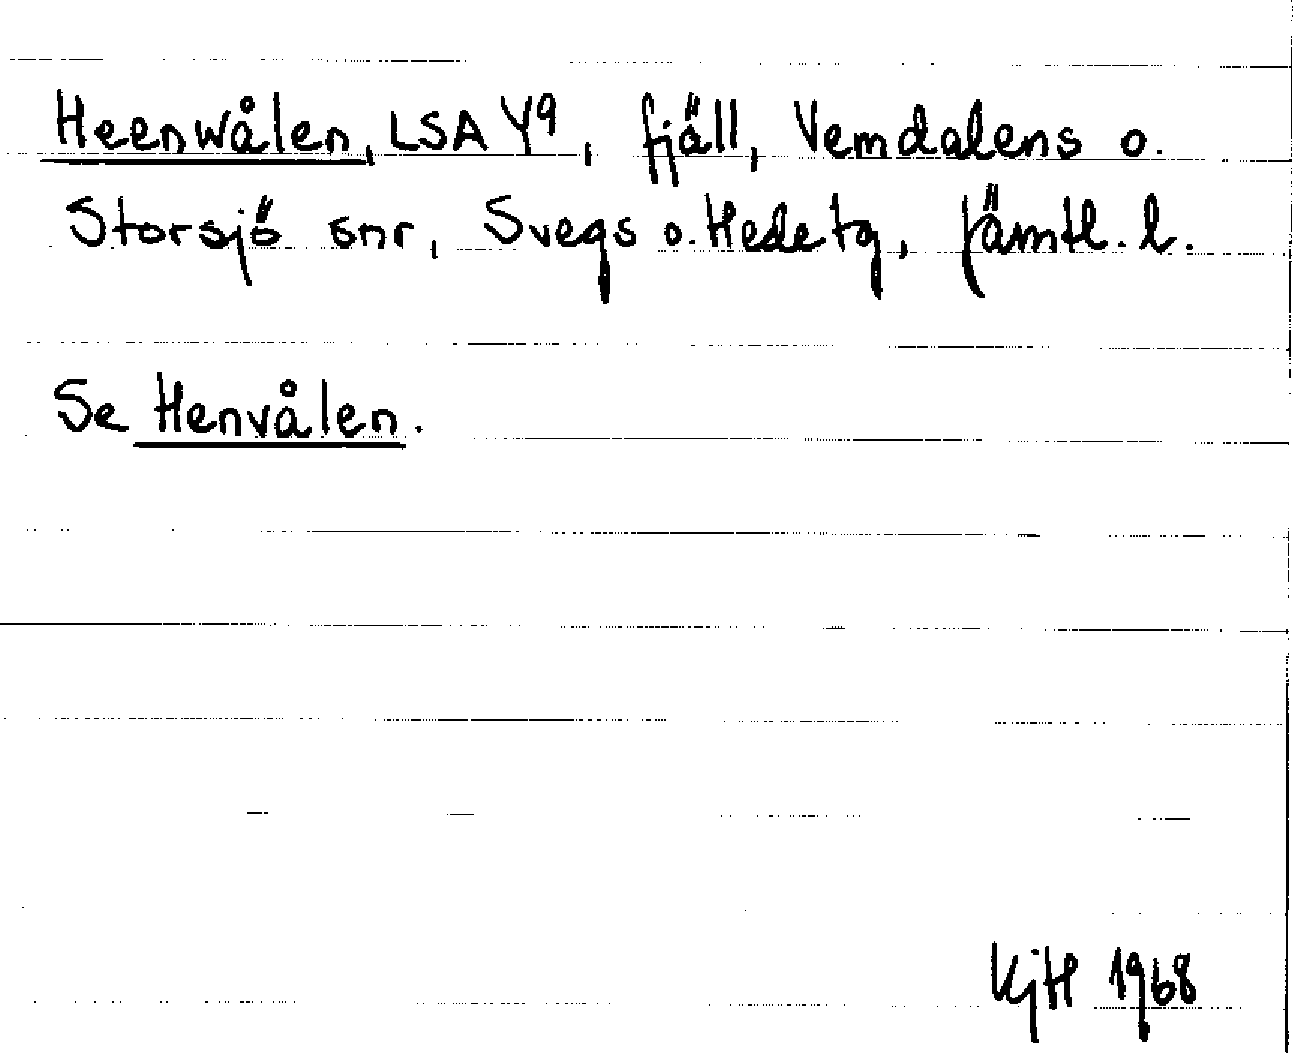 Heenwålen, LSA Y9, fjäll, Vemdalens o.
Storsjö snr, Svegs o. Hede tg, Jämtl. l.
Se Henvålen.
KjH 1968